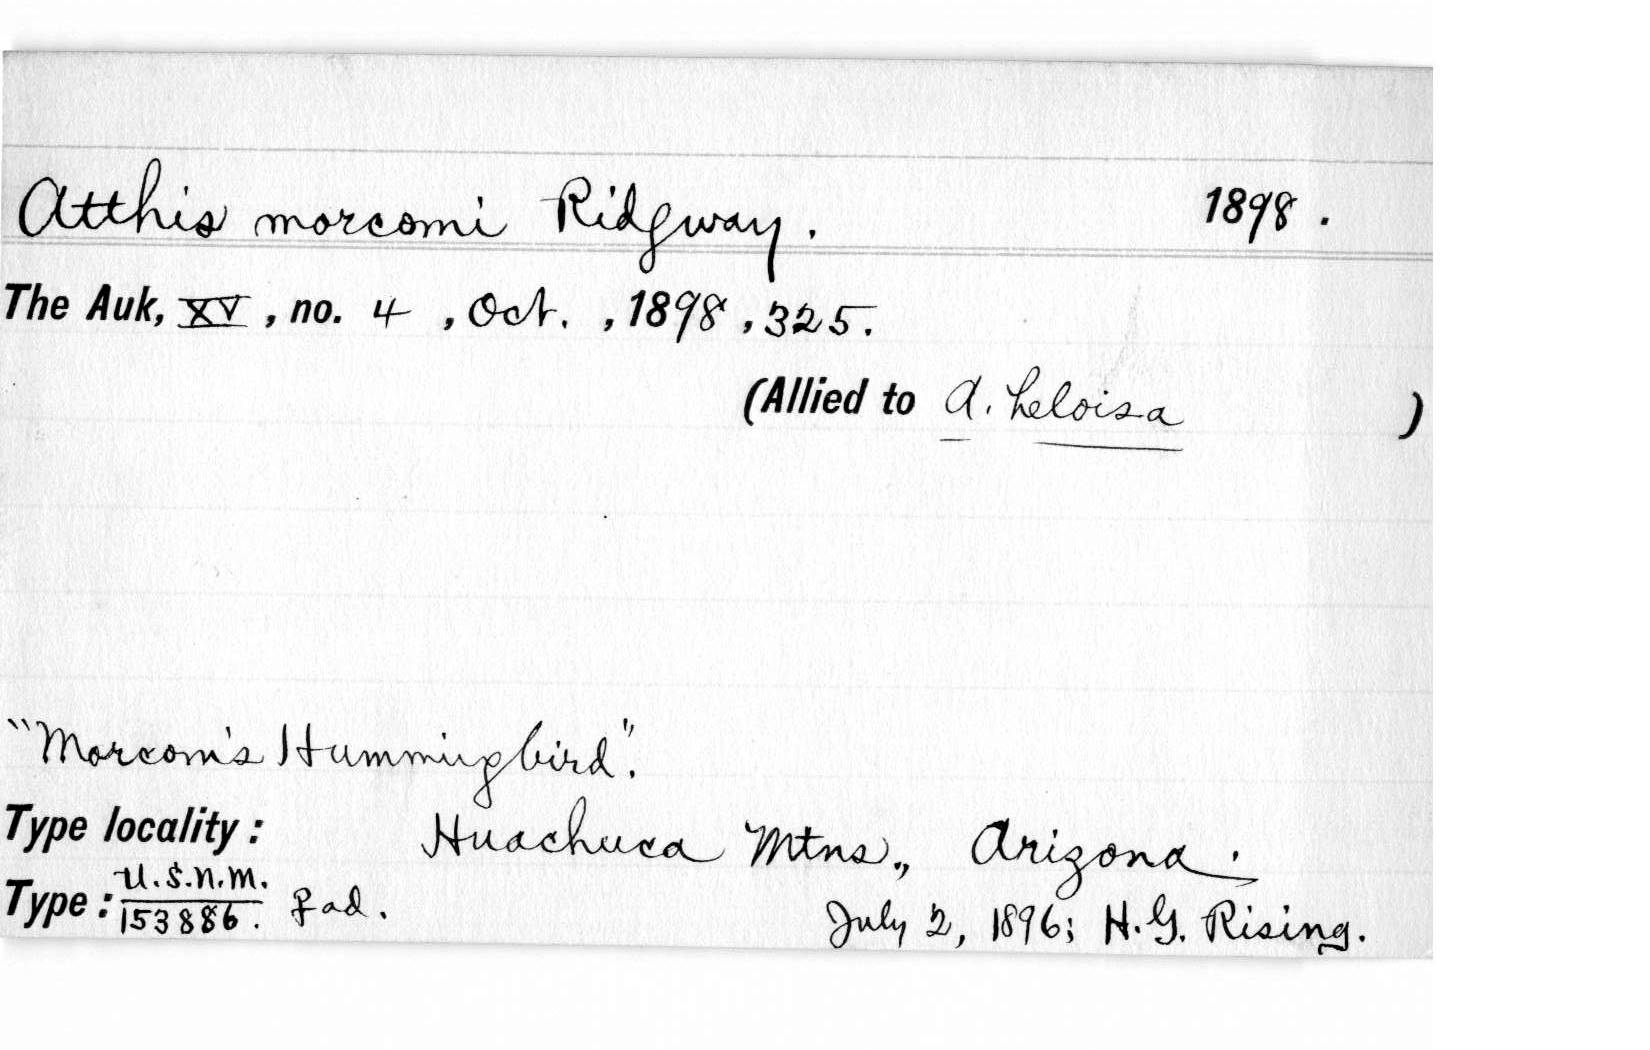 Atthis morcomi Ridgway. 1898.
The Auk, XV, no. 4, Oct., 1898, 325.
(Allied to A. heloisa)
"Morcom's Hummingbird".
Type locality: Huachuca Mtns., Arizona.
Type: U.S.N.M. 153886. ♀ ad. July 2, 1896; H. G. Rising.